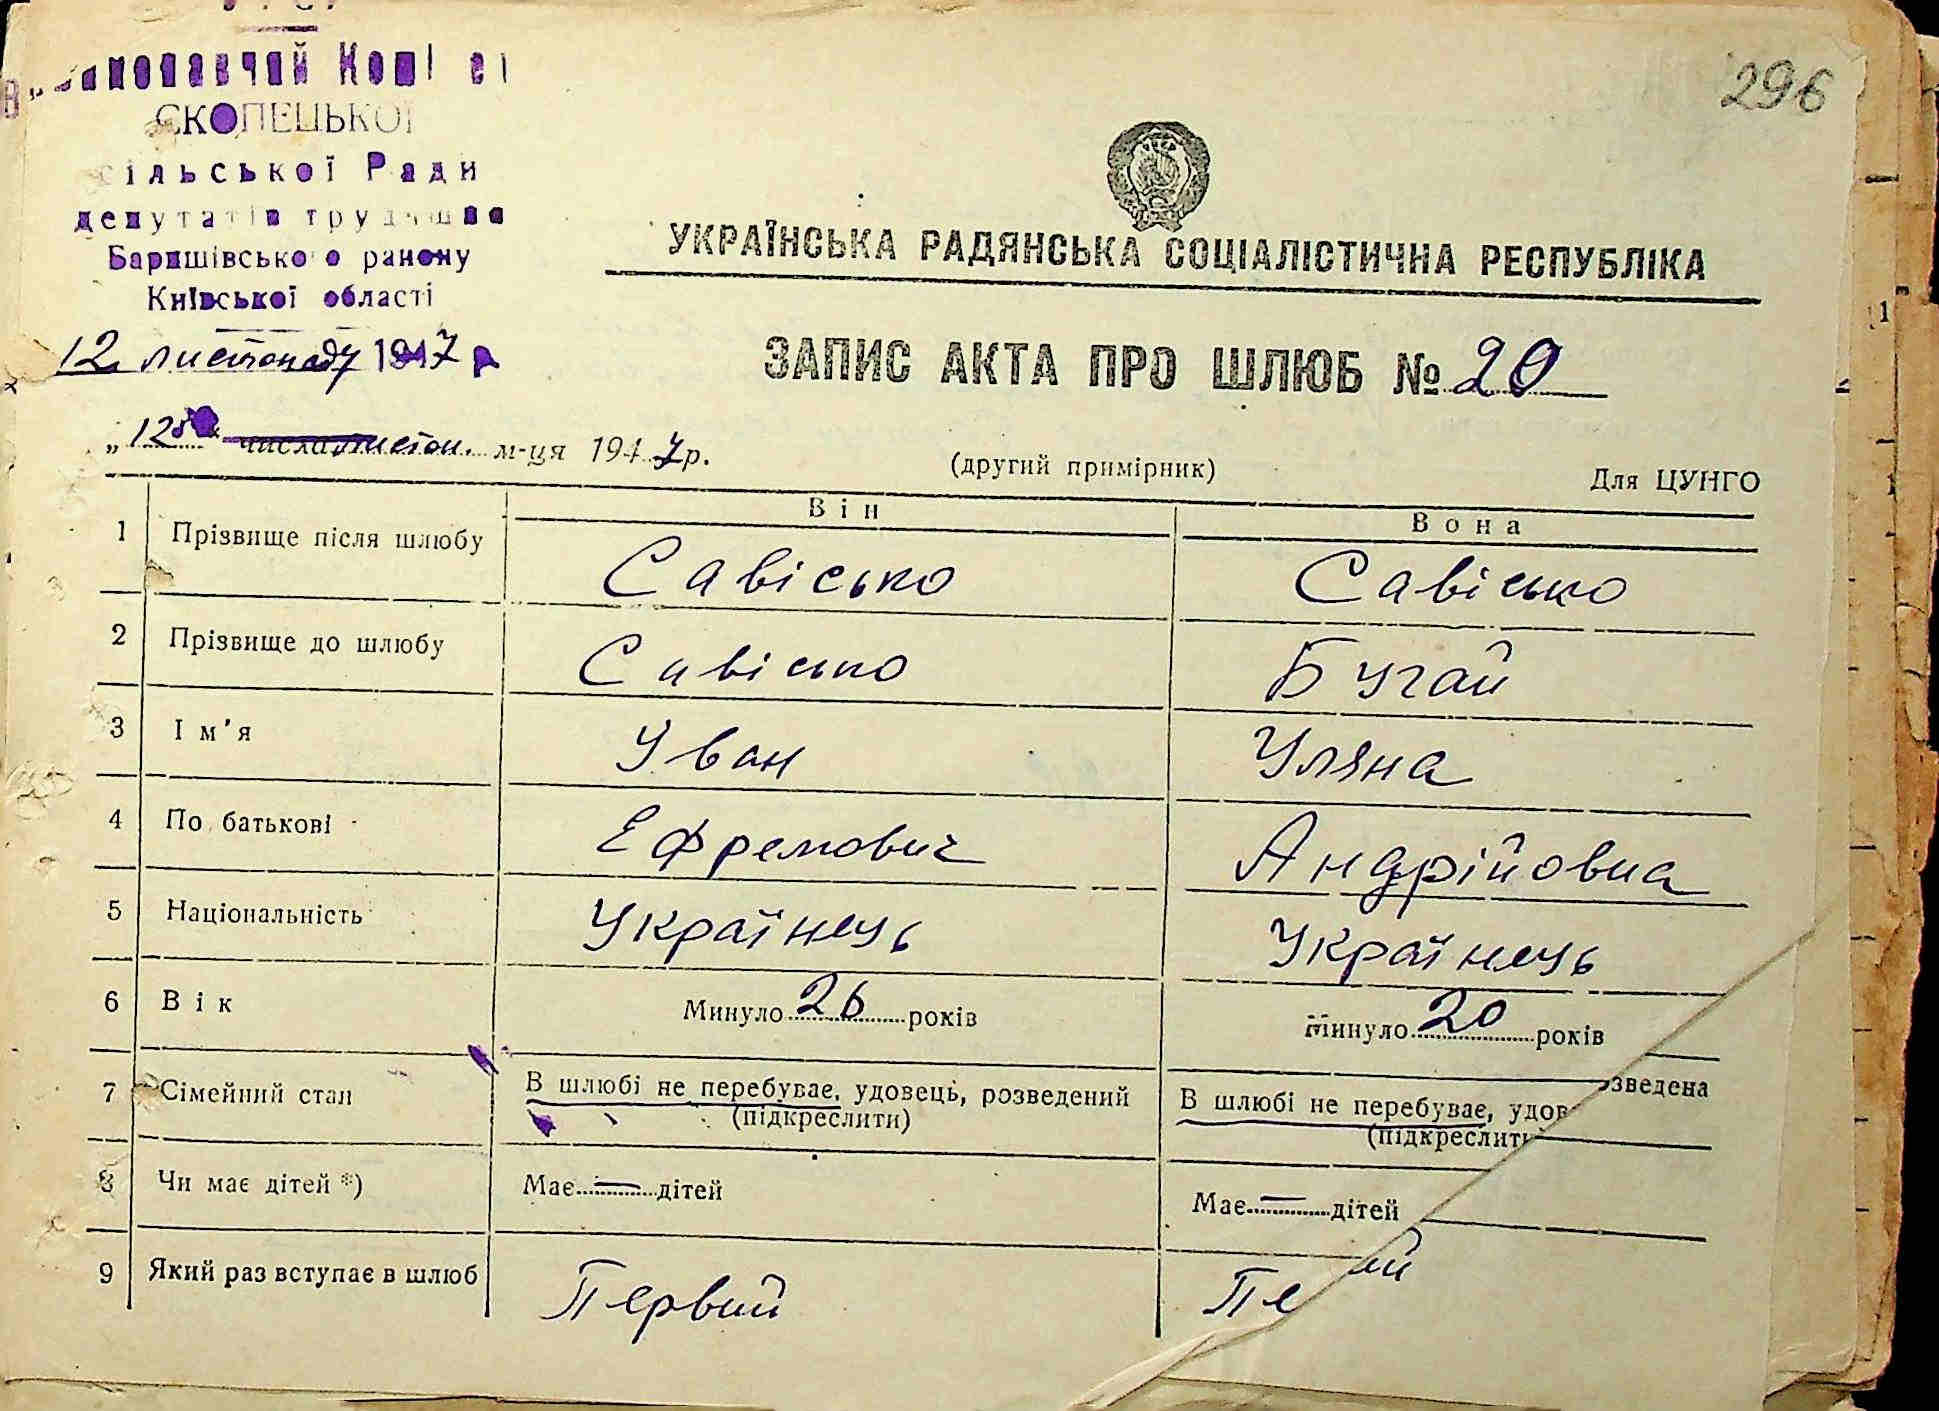 296
Виконавчий Комітет
СКОПЕЦЬКОЇ
сільської Ради
депутатів трудящих
Баришівського району
Київської області
12 листопаду 1947 р
УКРАЇНСЬКА РАДЯНСЬКА СОЦІАЛІСТИЧНА РЕСПУБЛІКА
ЗАПИС АКТА ПРО ШЛЮБ № 20
„12" числа листоп. м-ця 1947 р.
(другий примірник)
Для ЦУНГО
Він Вона
1 Прізвище після шлюбу Савісько Савісько
2 Прізвище до шлюбу Савісько Бугай
3 Ім'я Уван Уляна
4 По батькові Ефремович Андрійовна
5 Національність Українець Українець
6 Вік Минуло 26 років Минуло 20 років
7 Сімейний стан В шлюбі не перебуває, удовець, розведений В шлюбі не перебуває, удов зведена
(підкреслити) (підкреслити
8 Чи має дітей *) Має — дітей Має — дітей
9 Який раз вступає в шлюб Первий Пе ий